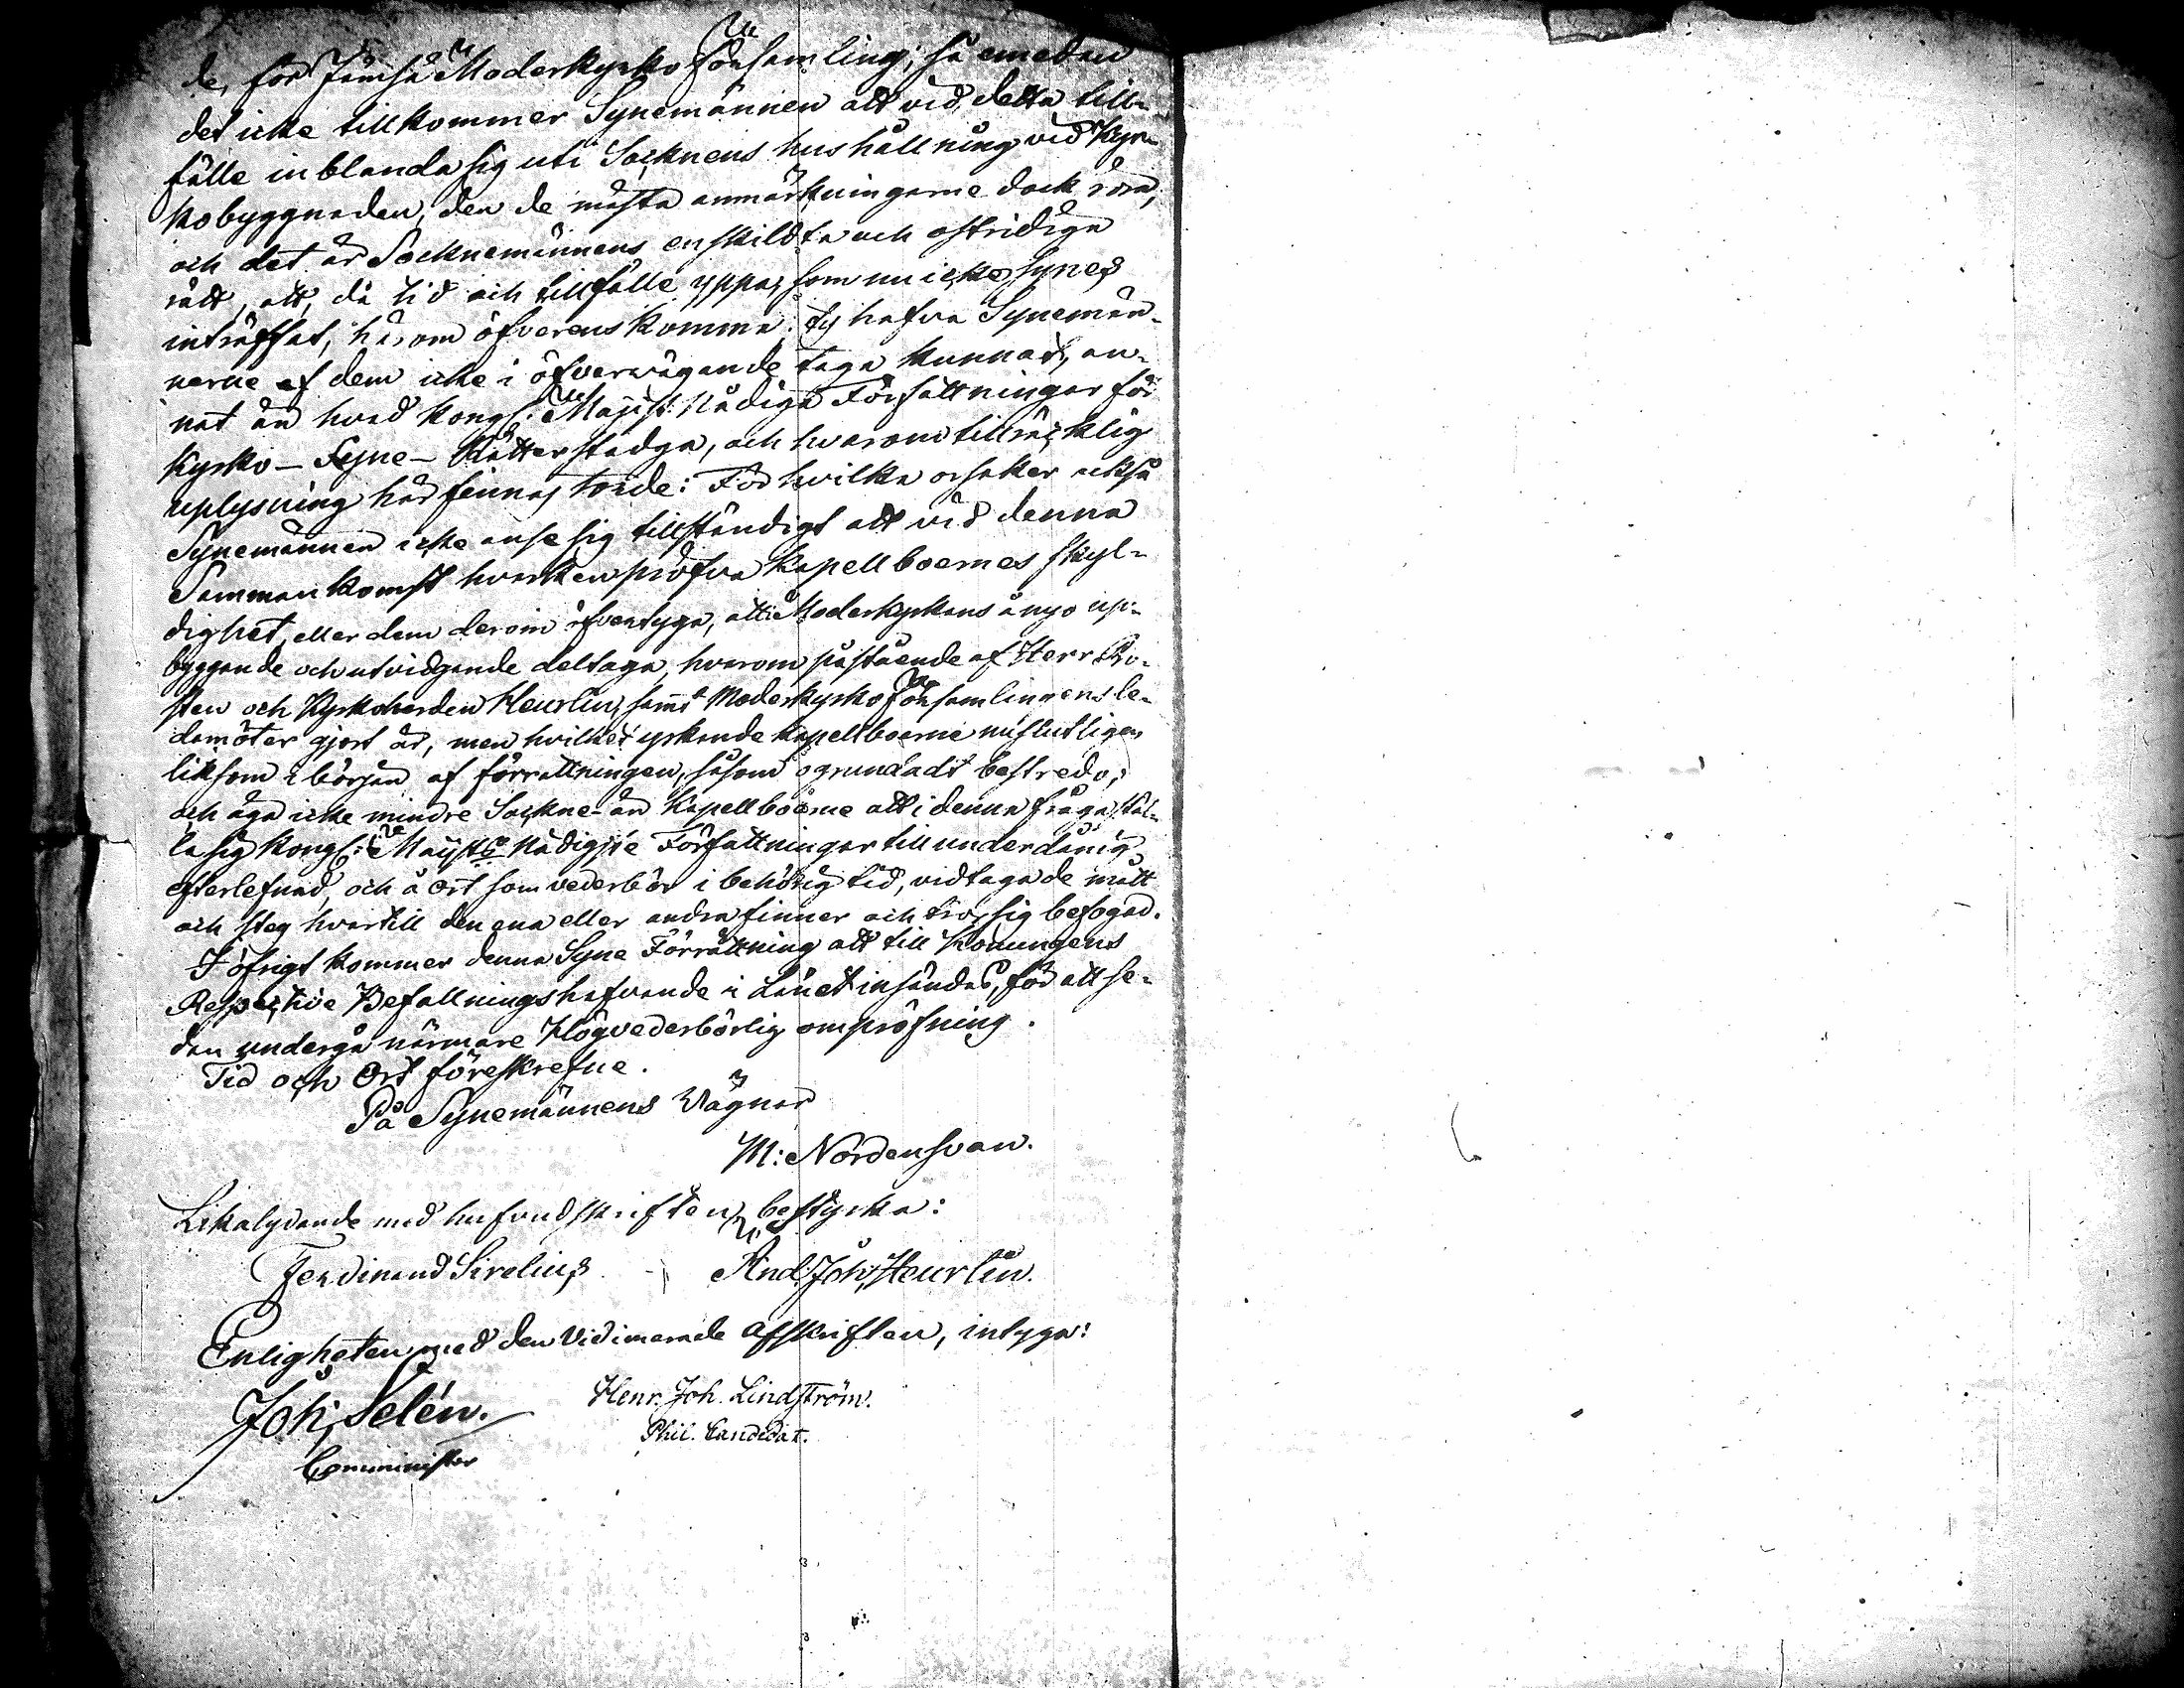 de, för Jämsä Moderkyrko församling; så emedan
det icke tillkommer Synemännen att vid detta till-
fälle inblanda sig uti Socknens hushållning vid Kyr-
kobyggnaden, den de mästa anmärkningarne dock röra,
och det är Socknemännens enskildta och ostridiga
rätt, att, då tid och tillfälle yppas, som nu icke synes
inträffat, härom öfverenskomma: ty hafva Synemän-
nerne af dem icke i öfvervägande taga kunnat, an-
nat än hvad Kongl: Majsts: Nådiga Författningar för
Kyrko-Syne-Rätter stadga, och hvarom tillräcklig
uplysning här finnas torde: För hvilka orsaker också
Synemännen icke anse sig tillständigt att vid denna
Sammankomst hvarken pröfva Kapellboernes skyl-
dighet, eller dem derom öfvertyga, att i Moderkyrkans ånyo up-
byggande och utvidgande deltaga, hvarom påstående af Herr Pro-
sten och Kyrkoherden Heurlin, samt Moderkyrko församlingens le-
damöter gjort är, men hvilket yrkande Kapellboerne nu slutligen
liksom i början af förrättningen, såsom ogrundadt bestredo;
och äga icke mindre Sockne- än Kapellboerne att i denna fråga stäl-
la sig Kongl: Majsts Nådigste Författningar till underdånig
efterlefnad, och å ort som vederbör i behörig tid, vidtaga de mått
och steg hvartill den ena eller andra finner och tror sig befogad.
I öfrigt kommer denna Syne Förrättning att till Konungens
Respective Befallningshafvande i Länet insändas, för att se-
dan undergå närmare Högvederbörlig ompröfning.
Tid och Ort föreskrefne.
På Synemännens Vägnar
M: Nordensvan.
Likalydande med hufvudskriften, bestyrka:
Ferdinand Sirelius And: Joh: Heurlin.
Enligheten med den Vidimerade afskriften, intyga:
Joh: Selén. Henr. Joh. Lindström.
Comminister Phil. Candidat.